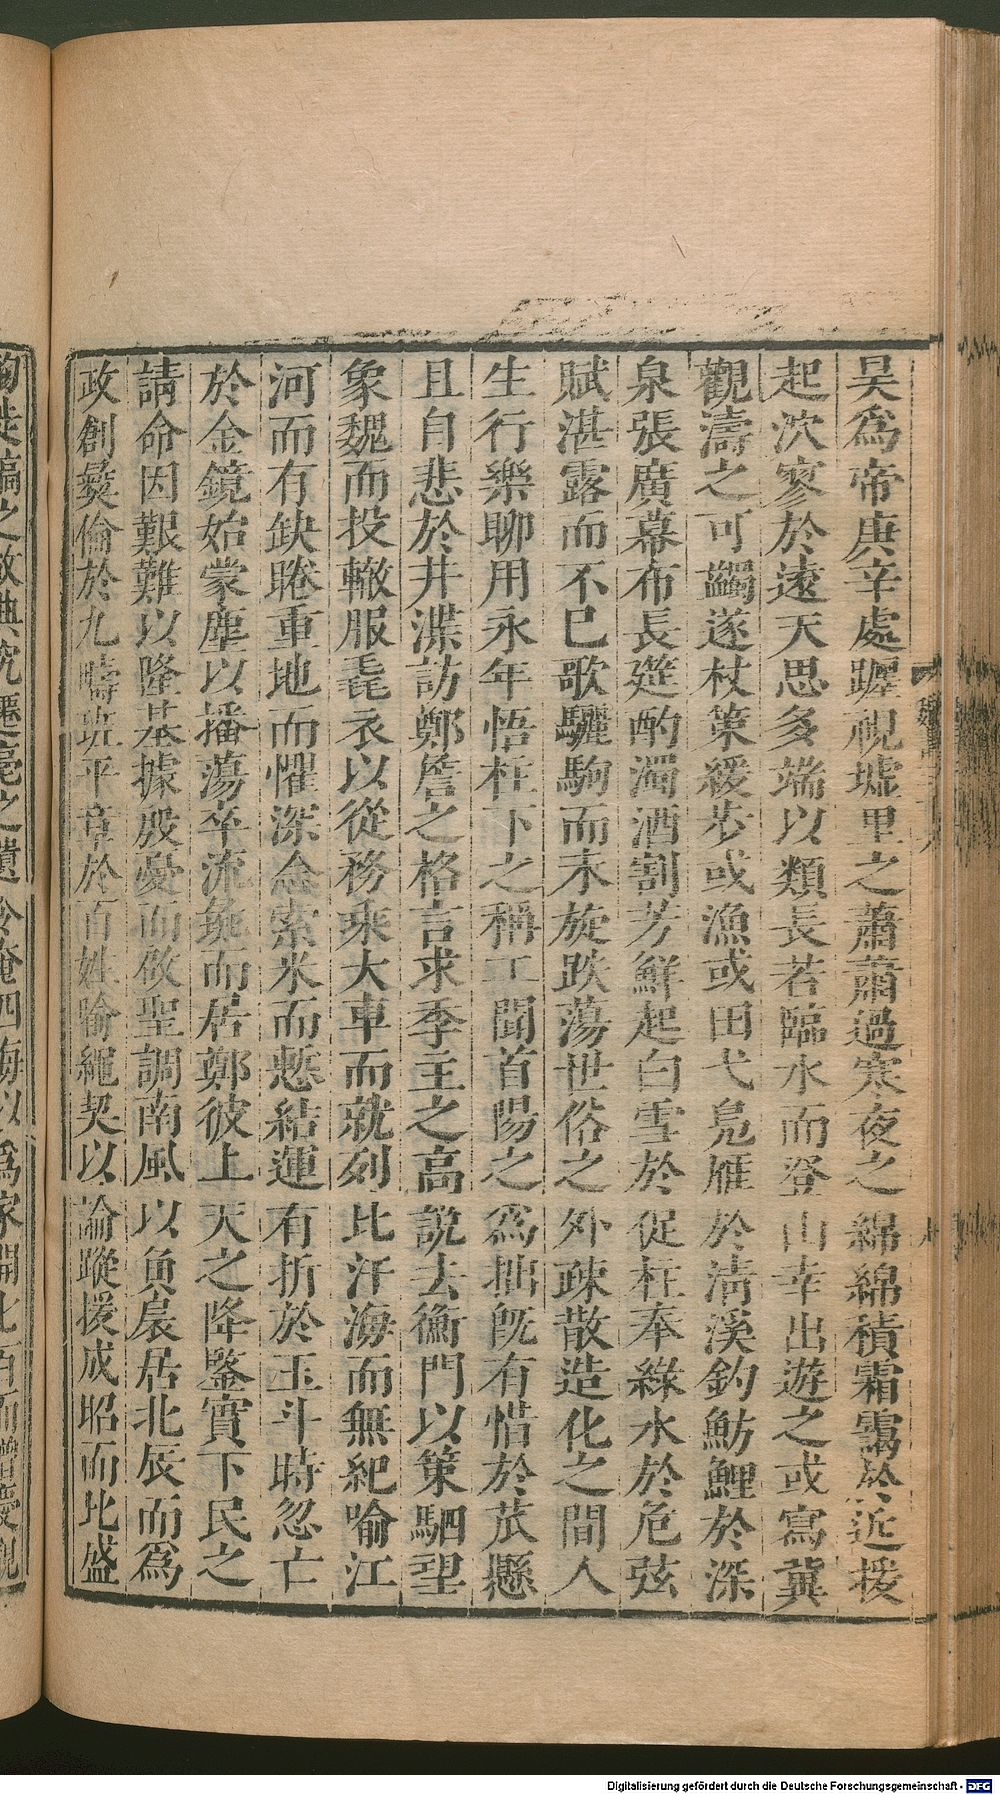 吴爲帝庚辛處躔視墟里之蕭蕭過寒夜之綿綿積霜靄於近援
起泬寥於遠天思多端以類長若臨水而登山幸出遊之或寫冀
觀濤之可蠲遂杖策緩步或漁或田弋鳬雁於清溪釣魴鯉於深
泉張廣幕布長筵酌濁酒割芳鮮起白雪於促柱奉綠水於危弦
賦湛露而不已歌驪駒而未旋跌蕩世俗之外疎散造化之間人
生行樂聊用永年悟柱下之稱工聞首陽之爲拙旣有惜於苽懸
且自悲於井渫訪鄭詹之格言求季主之高說去衡門以策駟望
象魏而投轍服毳衣以從務乘大車而就列比汗海而無紀喻江
河而有缺睠重地而懼深念索米而慙結運有折於玉斗時忽亡
於金鏡始蒙塵以播蕩卒流彘而居鄭彼上天之降鑒實下民之
請命因艱難以隆基據殷憂而啟聖調南風以負扆居北辰而爲
政創彝倫於九疇班平章於百姓喻繩契以論蹤援成昭而比盛
Digitalisierung gefördert durch die Deutsche Forschungsgemeinschaft - DFG